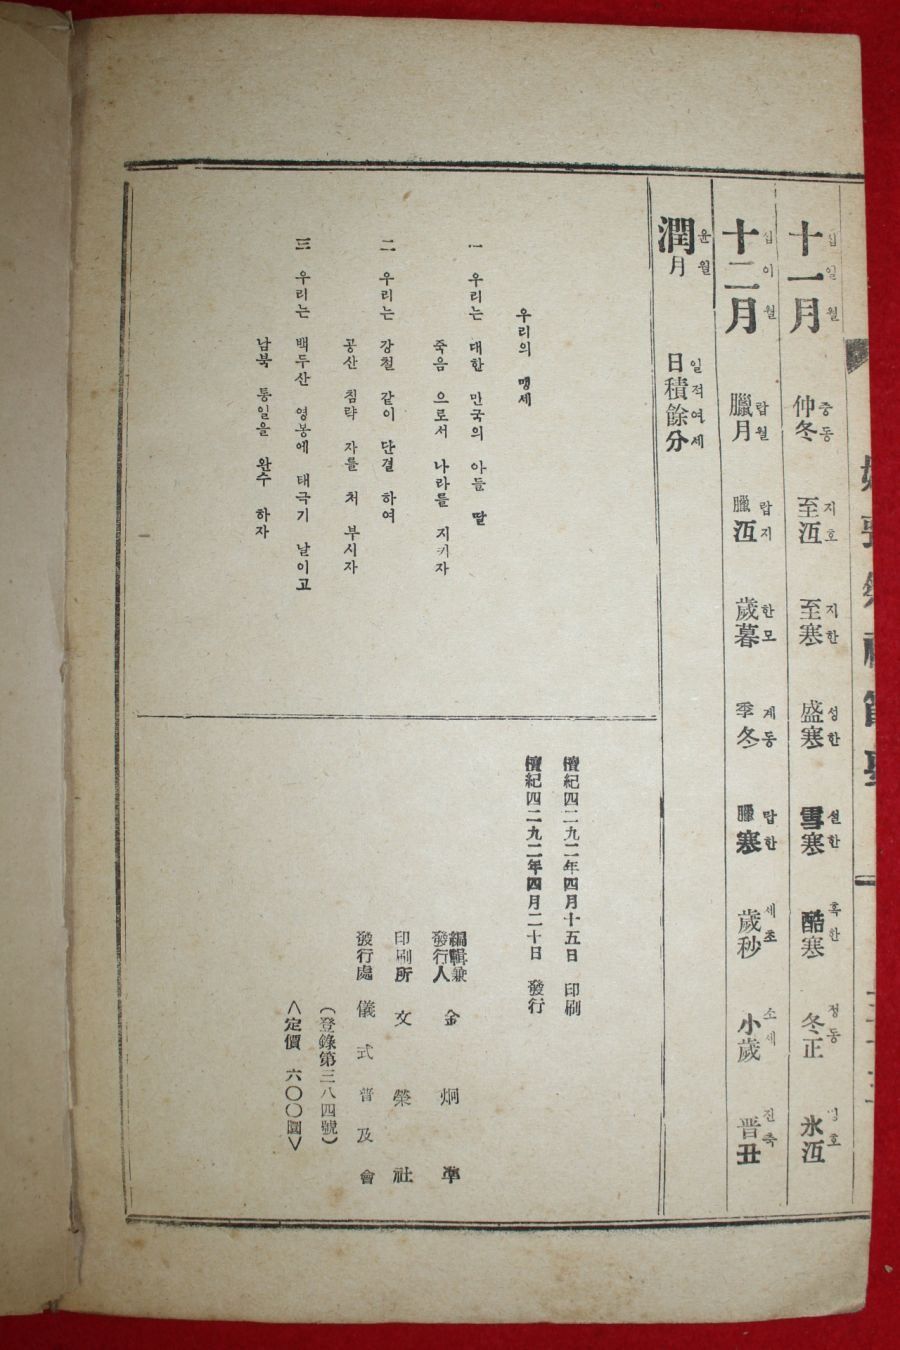 十一月 십일월 仲冬 중동 至沍 지호 至寒 지한 盛寒 성한 雪寒 설한 酷寒 혹한 冬正 정동 氷沍
十二月 십이월 臘月 랍월 臘沍 랍지 歲暮 한모 季冬 계동 臘寒 랍한 歲秒 세초 小歲 소세 晋丑 진축
潤月 윤월 日積餘分 일적여세
우리의 맹세
一 우리는 대한 민국의 아들 딸
죽음 으로서 나라를 지키자
二 우리는 강철 같이 단결 하여
공산 침략 자를 처 부시자
三 우리는 백두산 영봉에 태극기 날이고
남북 통일을 완수 하자
檀紀四二九二年四月十五日 印刷
檀紀四二九二年四月二十日 發行
編輯兼發行人 金炯準
印刷所 文榮社
發行處 儀式普及會
(登錄第三八四號)
<定價 六〇〇圜>